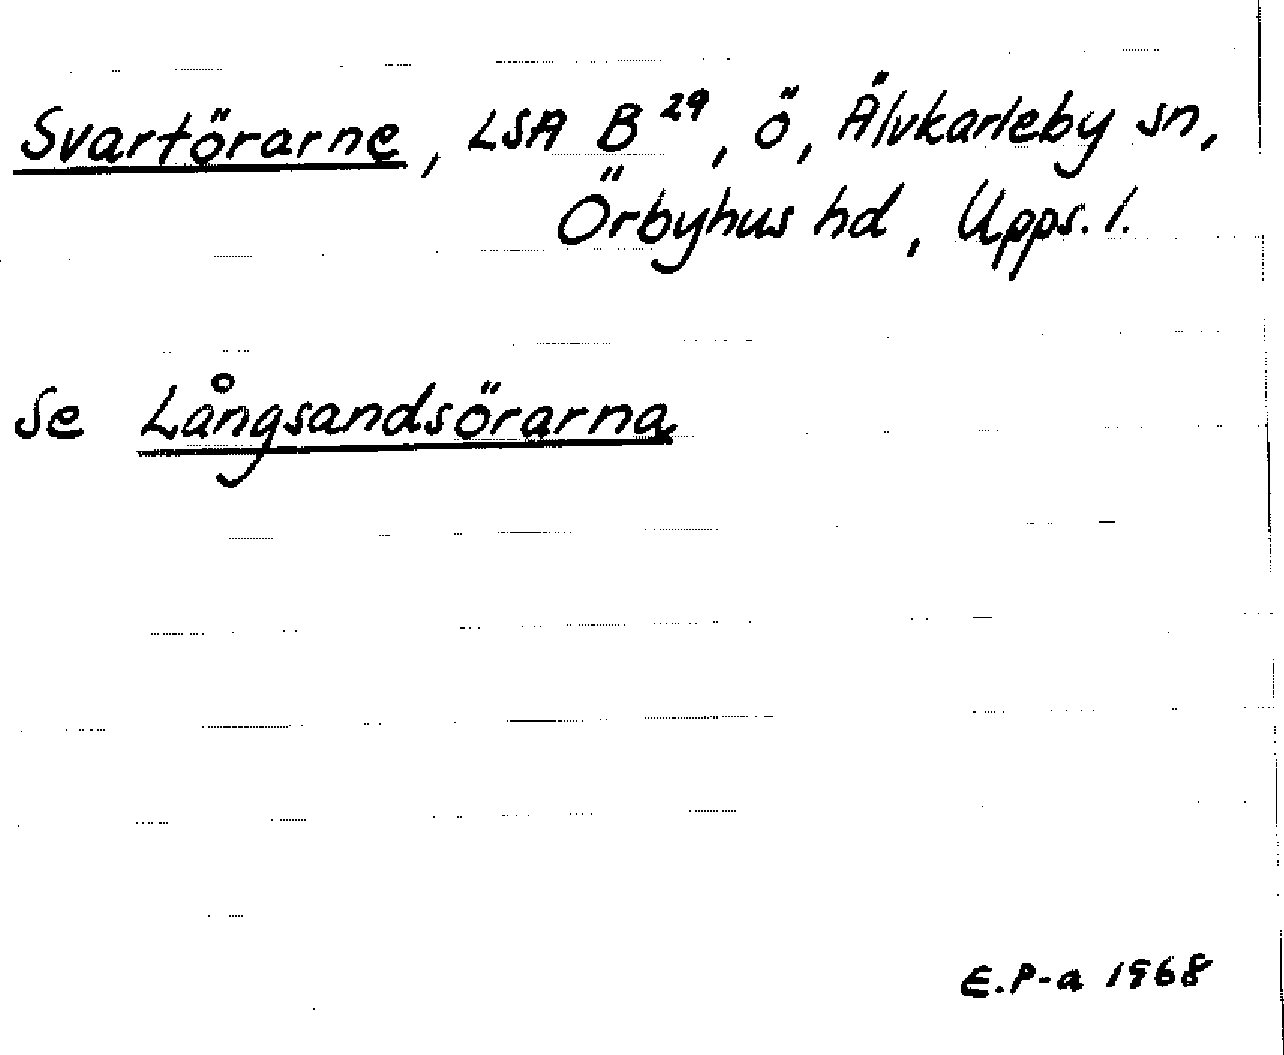 Svartörarne, LSA B 29, ö, Älvkarleby sn,
Örbyhus hd, Upps. l.
Se Långsandsörarna
E.P-a 1968